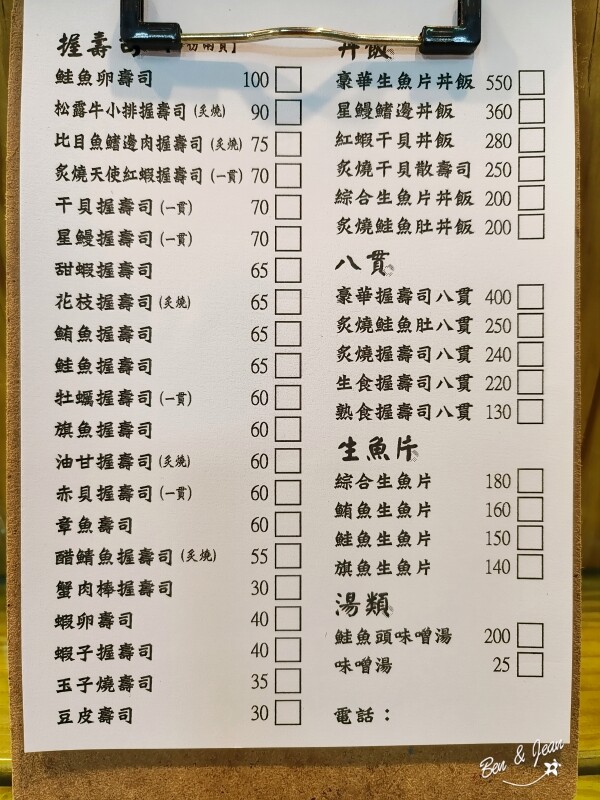 握壽司
鮭魚卵壽司 100
松露牛小排握壽司(炙燒) 90
比目魚鰭邊肉握壽司(炙燒) 75
炙燒天使紅蝦握壽司(一貫) 70
干貝握壽司(一貫) 70
星鰻握壽司(一貫) 70
甜蝦握壽司 65
花枝握壽司(炙燒) 65
鮪魚握壽司 65
鮭魚握壽司 65
牡蠣握壽司(一貫) 60
旗魚握壽司 60
油甘握壽司(炙燒) 60
赤貝握壽司(一貫) 60
章魚壽司 60
醋鯖魚握壽司(炙燒) 55
蟹肉棒握壽司 30
蝦卵壽司 40
蝦子握壽司 40
玉子燒壽司 35
豆皮壽司 30
丼飯
豪華生魚片丼飯 550
星鰻鰭邊丼飯 360
紅蝦干貝丼飯 280
炙燒干貝散壽司 250
綜合生魚片丼飯 200
炙燒鮭魚肚丼飯 200
八貫
豪華握壽司八貫 400
炙燒鮭魚肚八貫 250
炙燒握壽司八貫 240
生食握壽司八貫 220
熟食握壽司八貫 130
生魚片
綜合生魚片 180
鮪魚生魚片 160
鮭魚生魚片 150
旗魚生魚片 140
湯類
鮭魚頭味噌湯 200
味噌湯 25
電話：
Ben & Jean